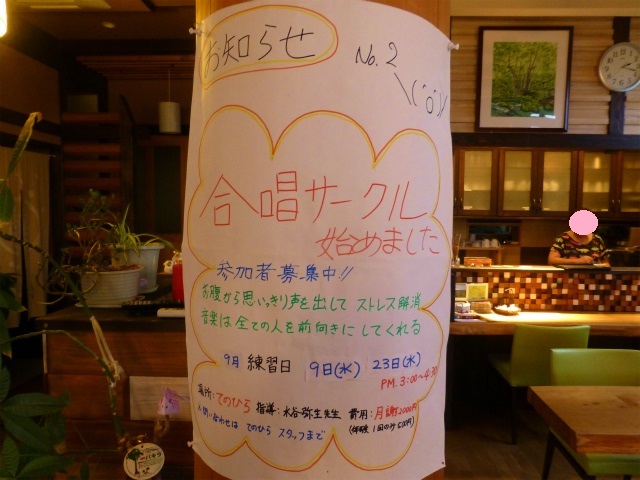 お知らせ
No.2
合唱サークル
始めました
参加者募集中!!
お腹から思いっきり声を出して ストレス解消
音楽は全ての人を前向きにしてくれる
9月 練習日 9日(水) 23日(水)
PM.3:00~4:30
場所:てのひら 指導:水谷弥生先生 費用:月謝2000円
(体験1回のみ500円)
お問い合わせは てのひら スタッフまで